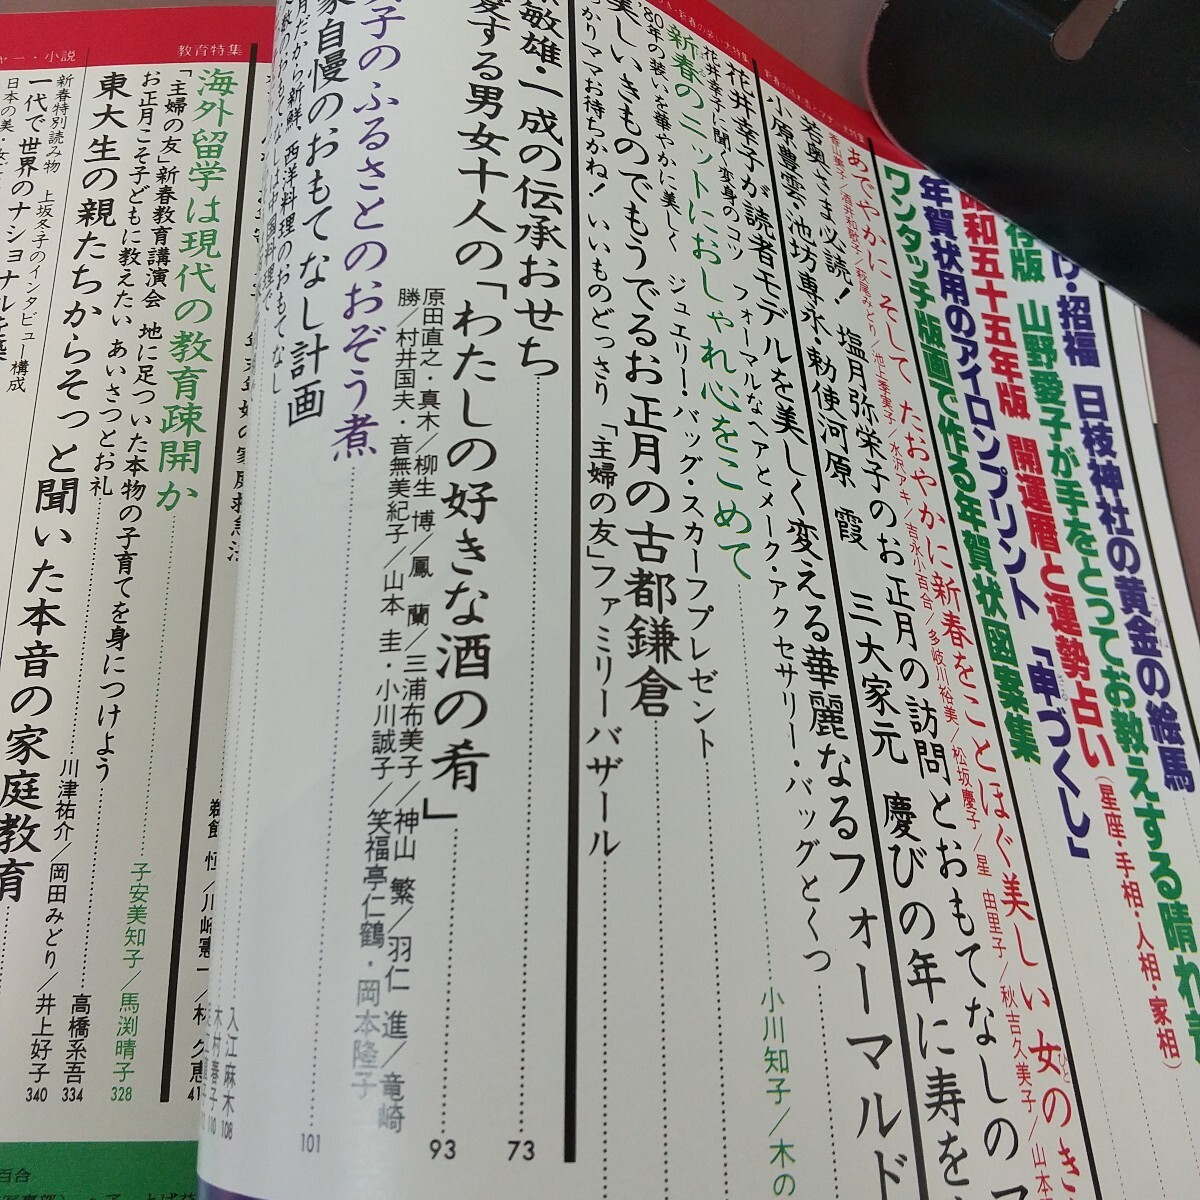 け・招福 日枝神社の黄金の絵馬
存版 山野愛子が手をとってお教えする晴れ着
昭和五十五年版 開運暦と運勢占い（星座・手相・人相・家相）
年賀状用のアイロンプリント「申づくし」
ワンタッチ版画で作る年賀状図案集
あでやかに そして たおやかに新春をことほぐ美しい女のき
香山美子／酒井和歌子／萩尾みどり／池上季実子／水沢アキ／吉永小百合／多岐川裕美／松坂慶子／星 由里子／秋吉久美子／山本
若奥さま必読！ 塩月弥栄子のお正月の訪問とおもてなしの
小原豊雲・池坊専永・勅使河原 霞 三大家元 慶びの年に寿を
花井幸子が読者モデルを美しく変える華麗なるフォーマルド
花井幸子に聞く変身のコツ フォーマルなヘアとメーク・アクセサリー・バッグとくつ
新春のニットにおしゃれ心をこめて
小川知子／木の
'80年の装いを華やかに美しく ジュエリー・バッグ・スカーフプレゼント
美しいきものでもうでるお正月の古都鎌倉
かりママお待ちかね！ いいものどっさり 「主婦の友」ファミリーバザール
敏雄・一成の伝承おせち
73
愛する男女十人の「わたしの好きな酒の肴」
93
原田直之・真木／柳生 博／鳳 蘭／三浦布美子／神山 繁／羽仁 進／竜崎
勝／村井国夫・音無美紀子／山本 圭・小川誠子／笑福亭仁鶴・岡本隆子
子のふるさとのおぞう煮
101
家自慢のおもてなし計画
月だから新鮮、西洋料理のおもてなし
入江麻木 108
木村春子 110
教育特集
海外留学は現代の教育疎開か
子安美知子／馬渕晴子 328
「主婦の友」新春教育講演会 地に足ついた本物の子育てを身につけよう
お正月こそ子どもに教えたい あいさつとお礼
東大生の親たちからそっと聞いた本音の家庭教育
川津祐介／岡田みどり／井上好子 340
高橋系吾 334
ャー・小説
新春特別読み物 上坂冬子のインタビュー構成
一代で世界のナショナルを築
百合